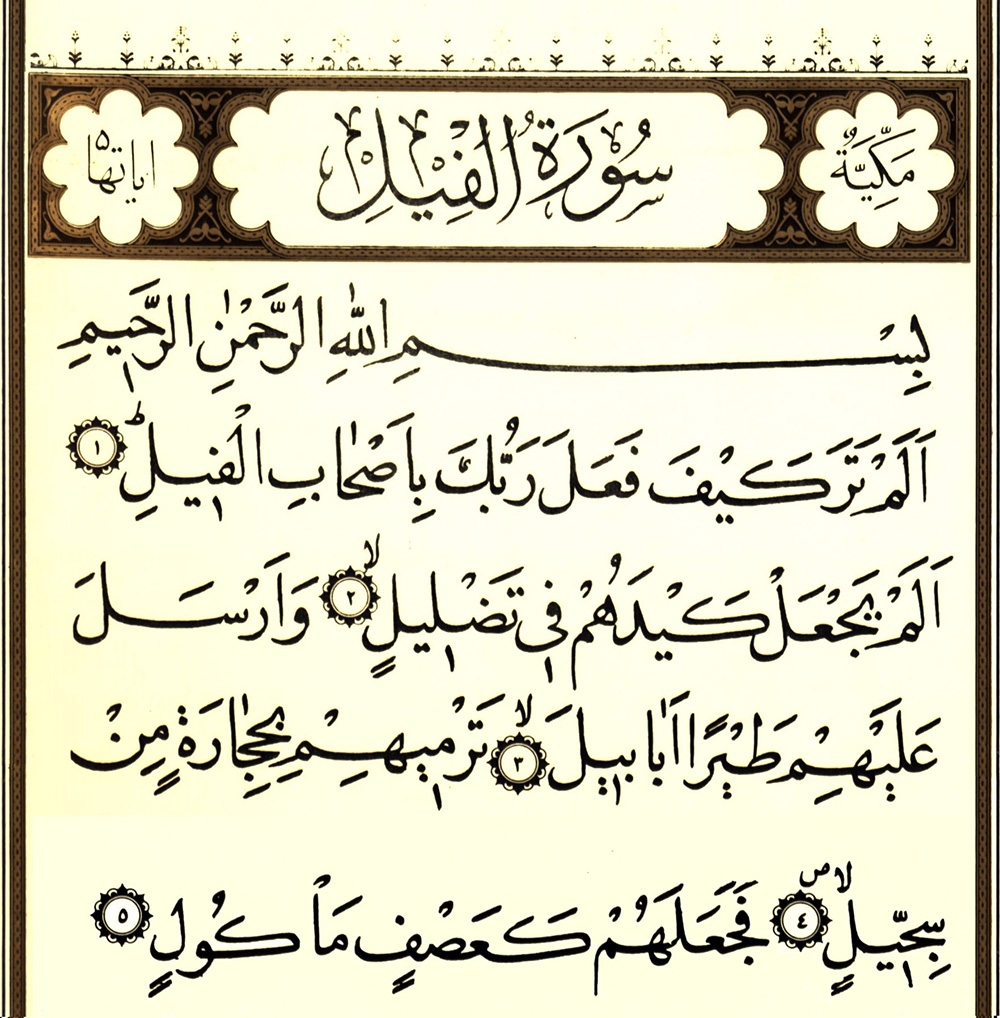 مَكِّيَّةٌ سُورَةُ الْفِيلِ اياتها ٥
بِسْمِ اللّٰهِ الرَّحْمٰنِ الرَّحِيمِ
اَلَمْ تَرَ كَيْفَ فَعَلَ رَبُّكَ بِاَصْحَابِ الْفِيلِ ١
اَلَمْ يَجْعَلْ كَيْدَهُمْ فِى تَضْلِيلٍ ٢ وَاَرْسَلَ
عَلَيْهِمْ طَيْرًا اَبَابِيلَ ٣ تَرْمِيهِمْ بِحِجَارَةٍ مِنْ
سِجِّيلٍ ٤ فَجَعَلَهُمْ كَعَصْفٍ مَاْكُولٍ ٥